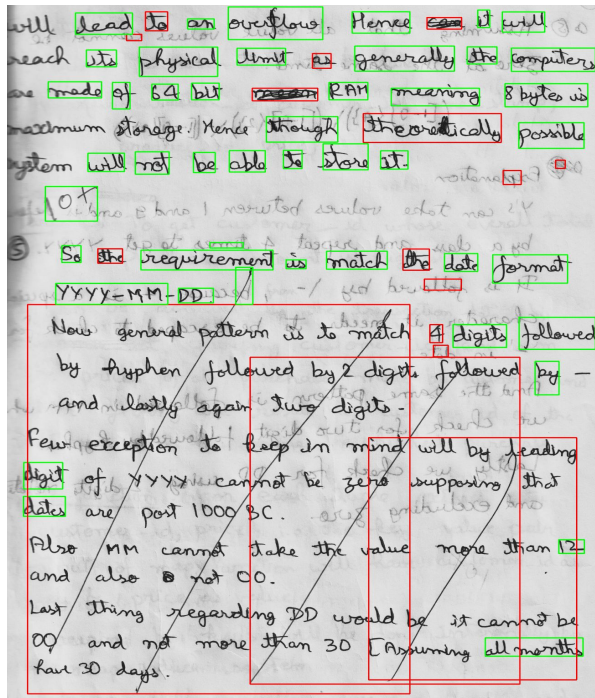 will lead to an overflow Hence it will
reach its physical limit as generally the computers
are made of 64 bit RAM meaning 8 bytes is
maximum storage. Hence though theoretically possible
system will not be able to store it.
10%
⑤ So the requirement is match the date format
YYYY-MM-DD.
Now general pattern is to match 4 digits followed
by hyphen followed by 2 digits followed by -
and lastly again two digits.
Few exception to keep in mind will by leading
digit of YYYY cannot be zero supposing that
dates are post 1000 BC.
Also MM cannot take the value more than 12
and also not 00.
Last thing regarding DD would be it cannot be
00 and not more than 30 [Assuming all months
have 30 days.